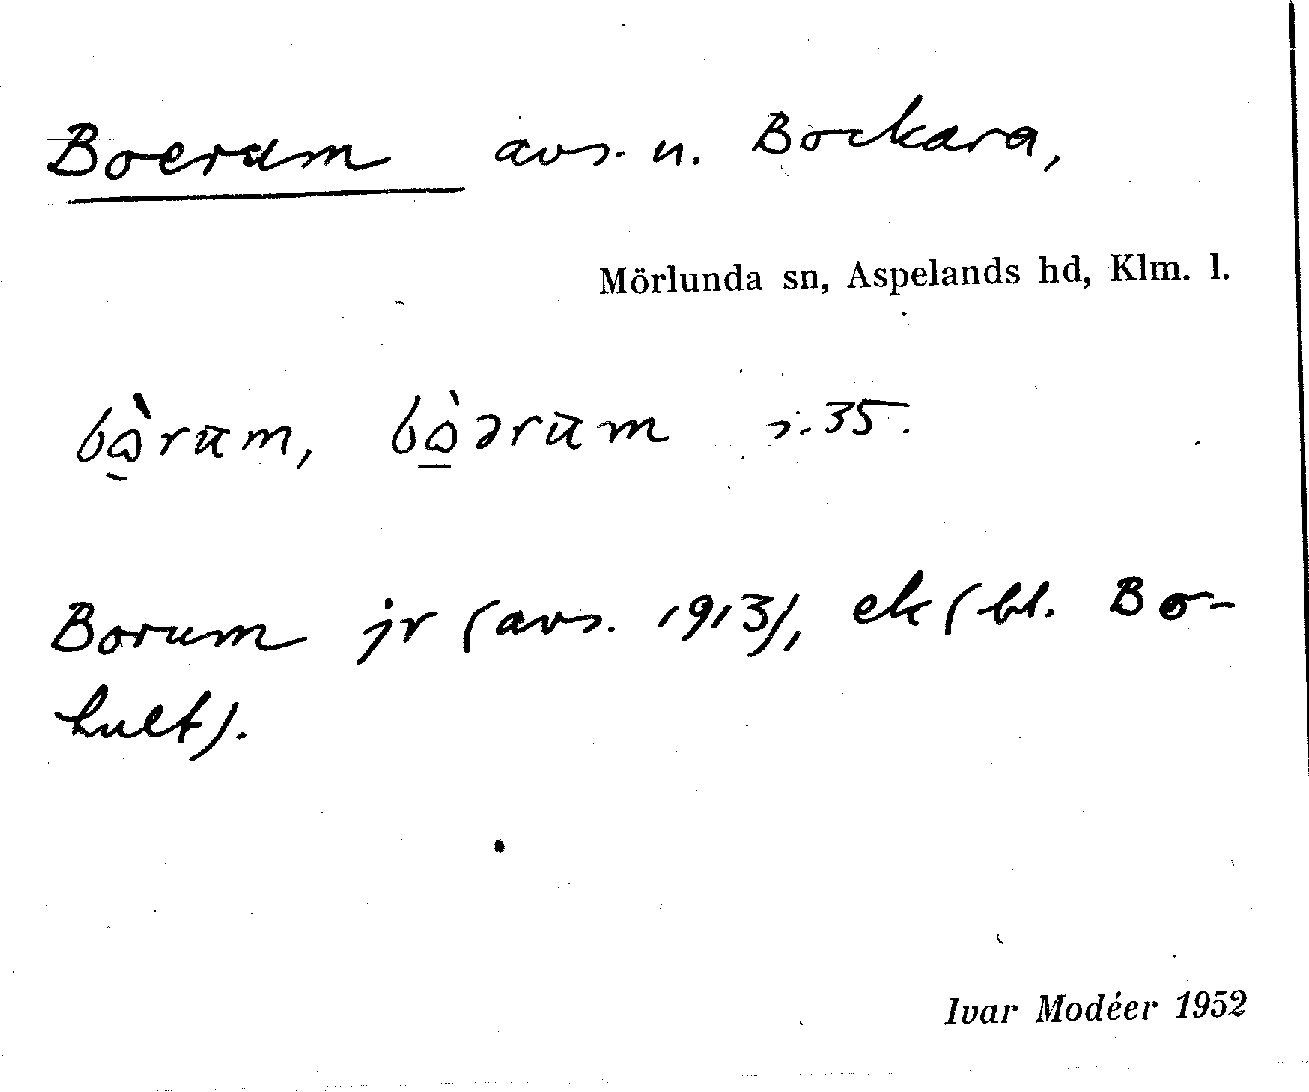 Boerum avs. u. Bockara,
Mörlunda sn, Aspelands hd, Klm. l.
bò̱rum, bò̱ərum s. 35.
Borum jr (avs. 1913), ek (bl. Bo-
hult).
Ivar Modéer 1952